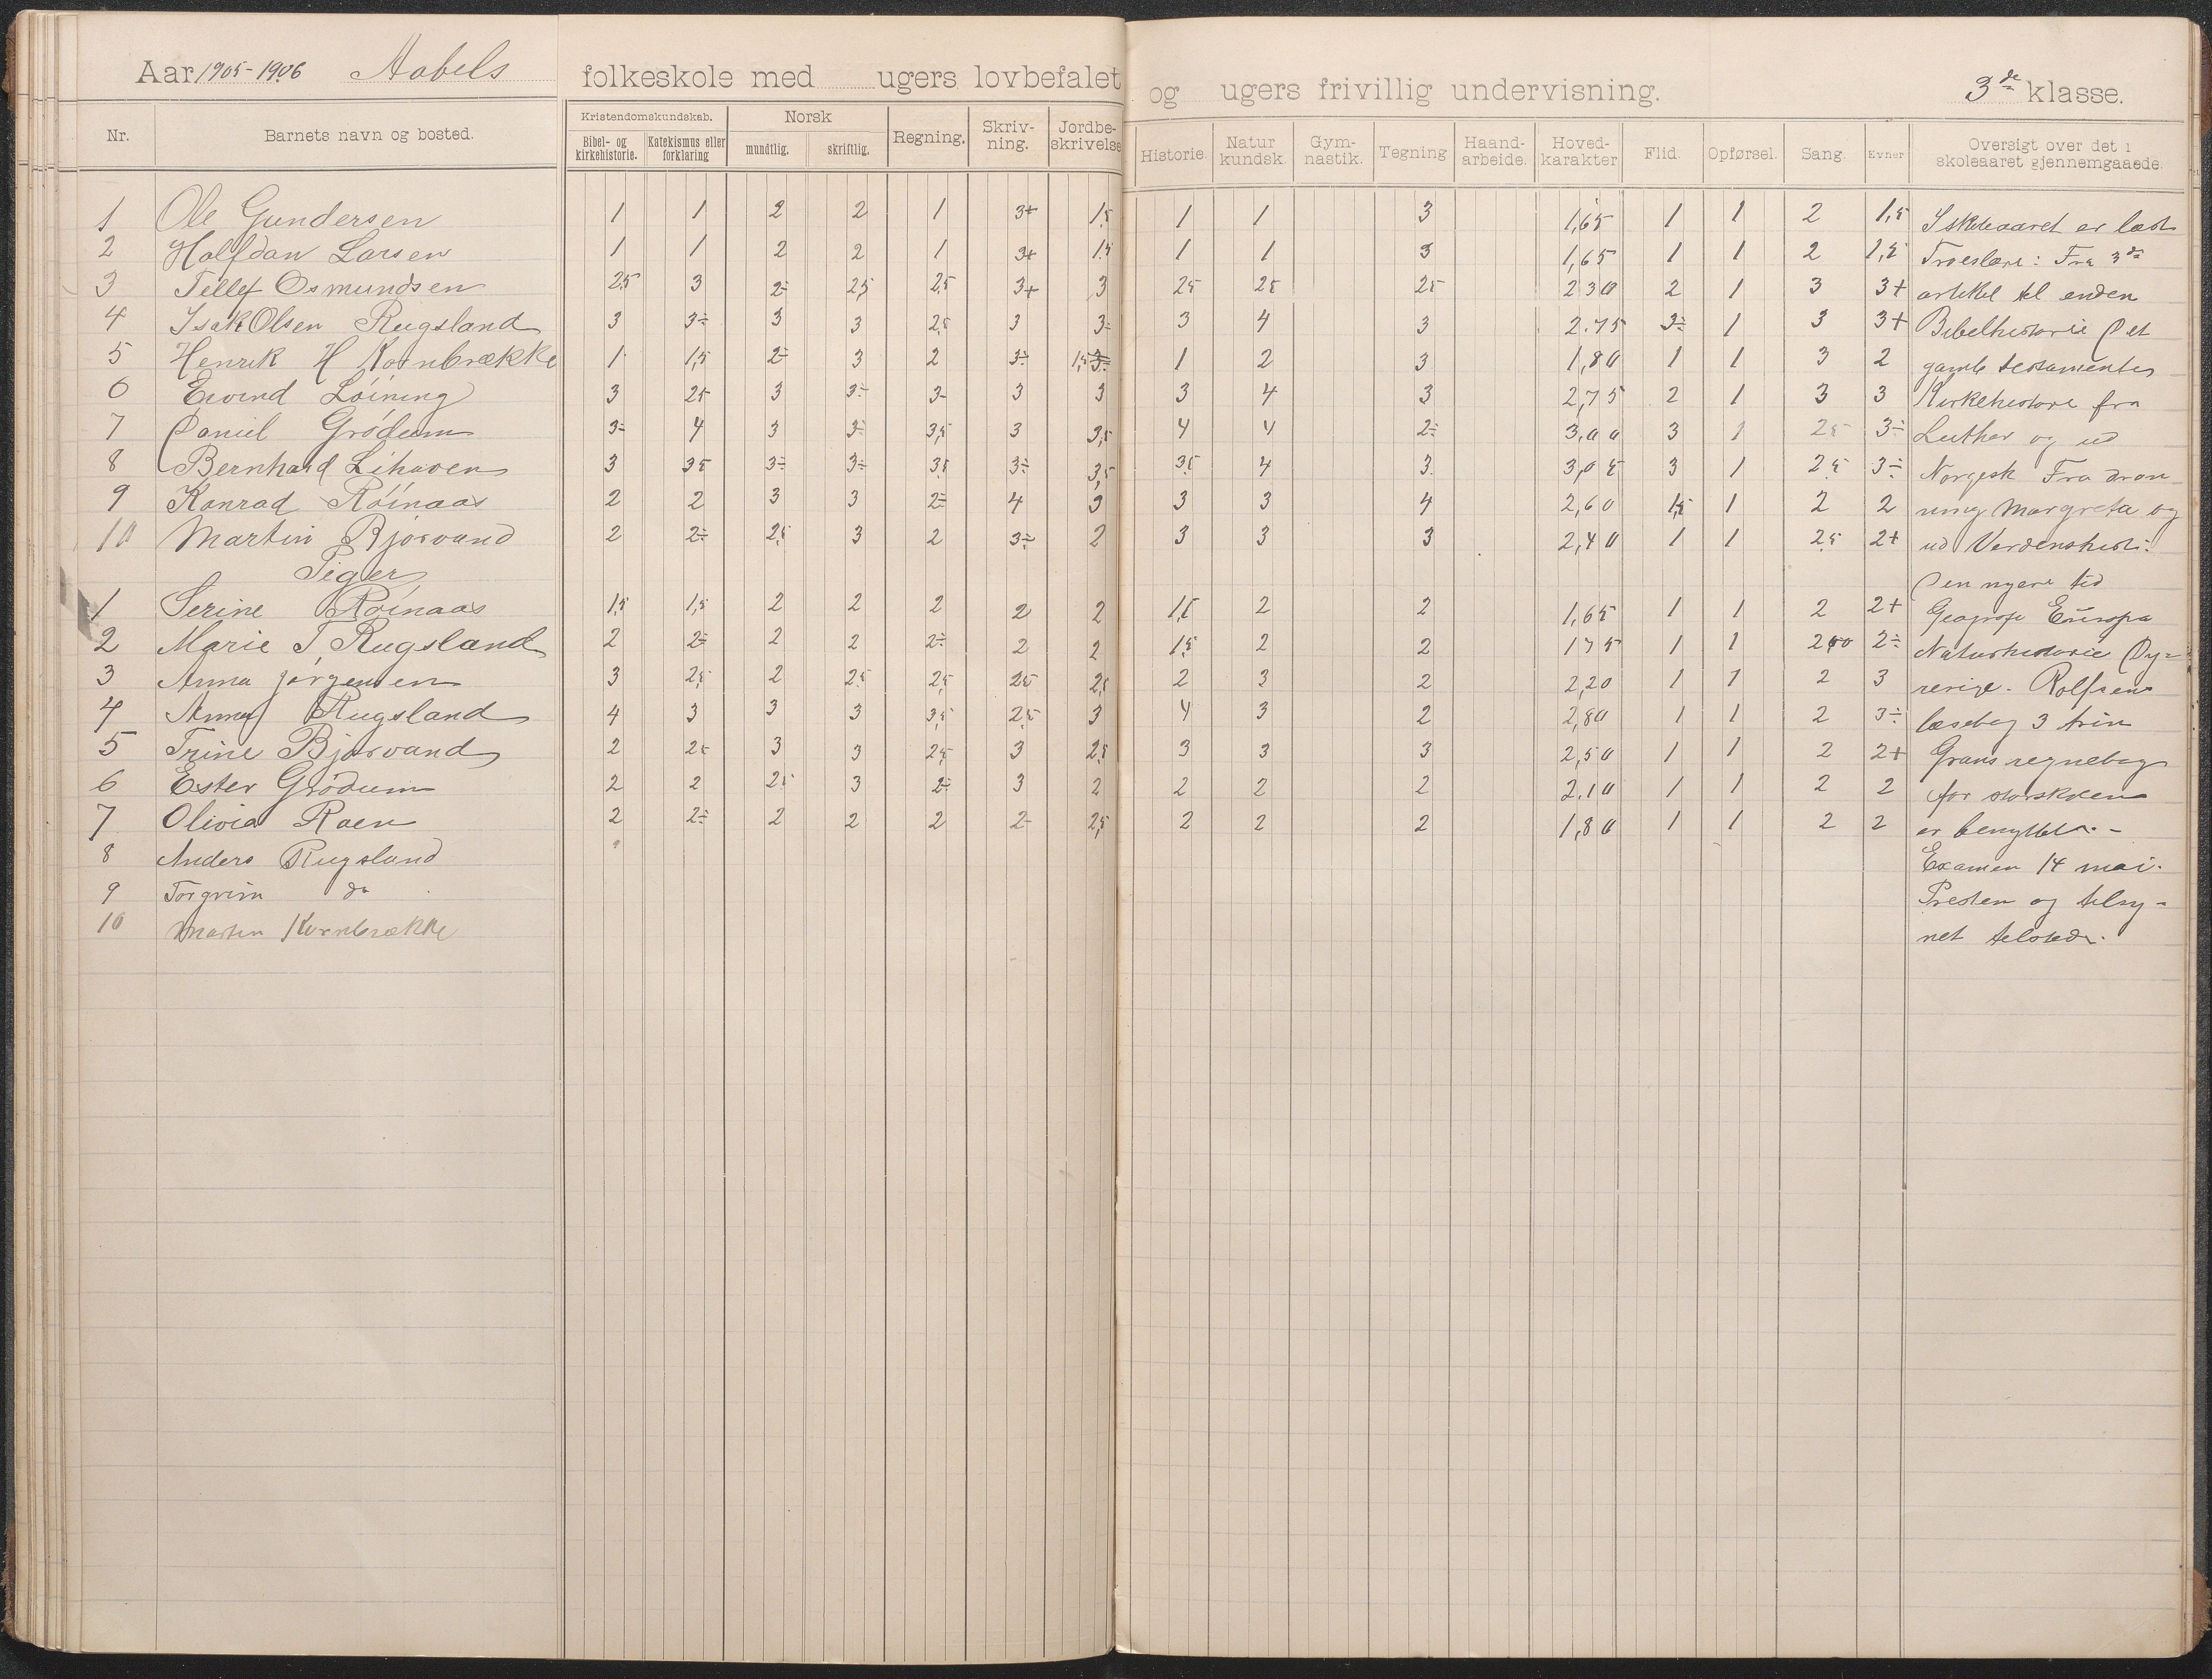 Aar 1905-1906 Aabels folkeskole med ugers lovbefalet og ugers frivillig undervisning. 3de klasse.
Nr. Barnets navn og bosted. Kristendomskundskab. Bibel- og kirkehistorie. Katekismus eller forklaring Norsk mundtlig. skriftlig. Regning. Skriv-ning. Jordbe-skrivelse Historie. Natur kundsk. Gym-nastik. Tegning Haand-arbeide. Hoved-karakter Flid. Opførsel. Sang. Evner Oversigt over det i skoleaaret gjennemgaaede.
1 Ole Gundersen 1 1 2 2 1 3+ 1,5 1 1 3 1,65 1 1 2 1,5 I skoleaaret er læst
2 Halfdan Larsen 1 1 2 2 1 3+ 1,5 1 1 3 1,65 1 1 2 1,5 Troeslære: Fra 3de
3 Tellef Osmundsen 2,5 3 2÷ 2,5 2,5 3+ 3 25 25 25 230 2 1 3 3+ artikel til enden
4 Isak Olsen Rugsland 3 3÷ 3 3 2,5 3 3÷ 3 4 3 2.75 3÷ 1 3 3+ Bibelhistorie Det
5 Henrik H Kornbrække 1 1,5 2÷ 3 2 3÷ 1,5 1 2 3 1,80 1 1 3 2 gamle testamente
6 Eivind Løining 3 25 3 3÷ 3- 3 3 3 4 3 2,75 2 1 3 3 Kirkehistorie fra
7 Daniel Grödum 3÷ 4 3 3÷ 3,5 3 3,5 4 4 2÷ 3,00 3 1 25 3÷ Luther og ud
8 Bernhard Lihaven 3 35 3÷ 3÷ 35 3÷ 3,5 35 4 3 3,05 3 1 25 3÷ Norgesh Fra dron
9 Konrad Röinaas 2 2 3 3 2÷ 4 3 3 3 4 2,60 1,5 1 2 2 ning Margreta og
10 Martin Bjorvand 2 2÷ 2,5 3 2 3÷ 2 3 3 3 2,40 1 1 25 2+ ud Verdenshist:
Piger Den nyere tid
1 Serine Röinaas 1,5 1,5 2 2 2 2 2 1,5 2 2 1,65 1 1 2 2+ Geografi Europa
2 Marie T Rugsland 2 2÷ 2 2 2÷ 2 2 1,5 2 2 175 1 1 200 2÷ Naturhistorie Dy-
3 Anna Jørgensen 3 2,5 2 25 2,5 25 2,5 2 3 2 2,20 1 1 2 3 rerige. Rolfsens
4 Anna Rugsland 4 3 3 3 3,5 2,5 3 4 3 2 2,80 1 1 2 3÷ læsebog 3 trin
5 Trine Bjorvand 2 25 3 3 2,5 3 2,5 3 3 3 2,50 1 1 2 2+ Grans regnebog
6 Ester Grödum 2 2 25 3 2÷ 3 2 2 2 2 2.10 1 1 2 2 for storskolen
7 Olivia Raen 2 2÷ 2 2 2 2- 2,5 2 2 2 1,80 1 1 2 2 er benyttet. -
8 Anders Rugsland Examen 14 mai.
9 Torgrim do Presten og tilsy-
10 Martin Kornbrække net tilstede.